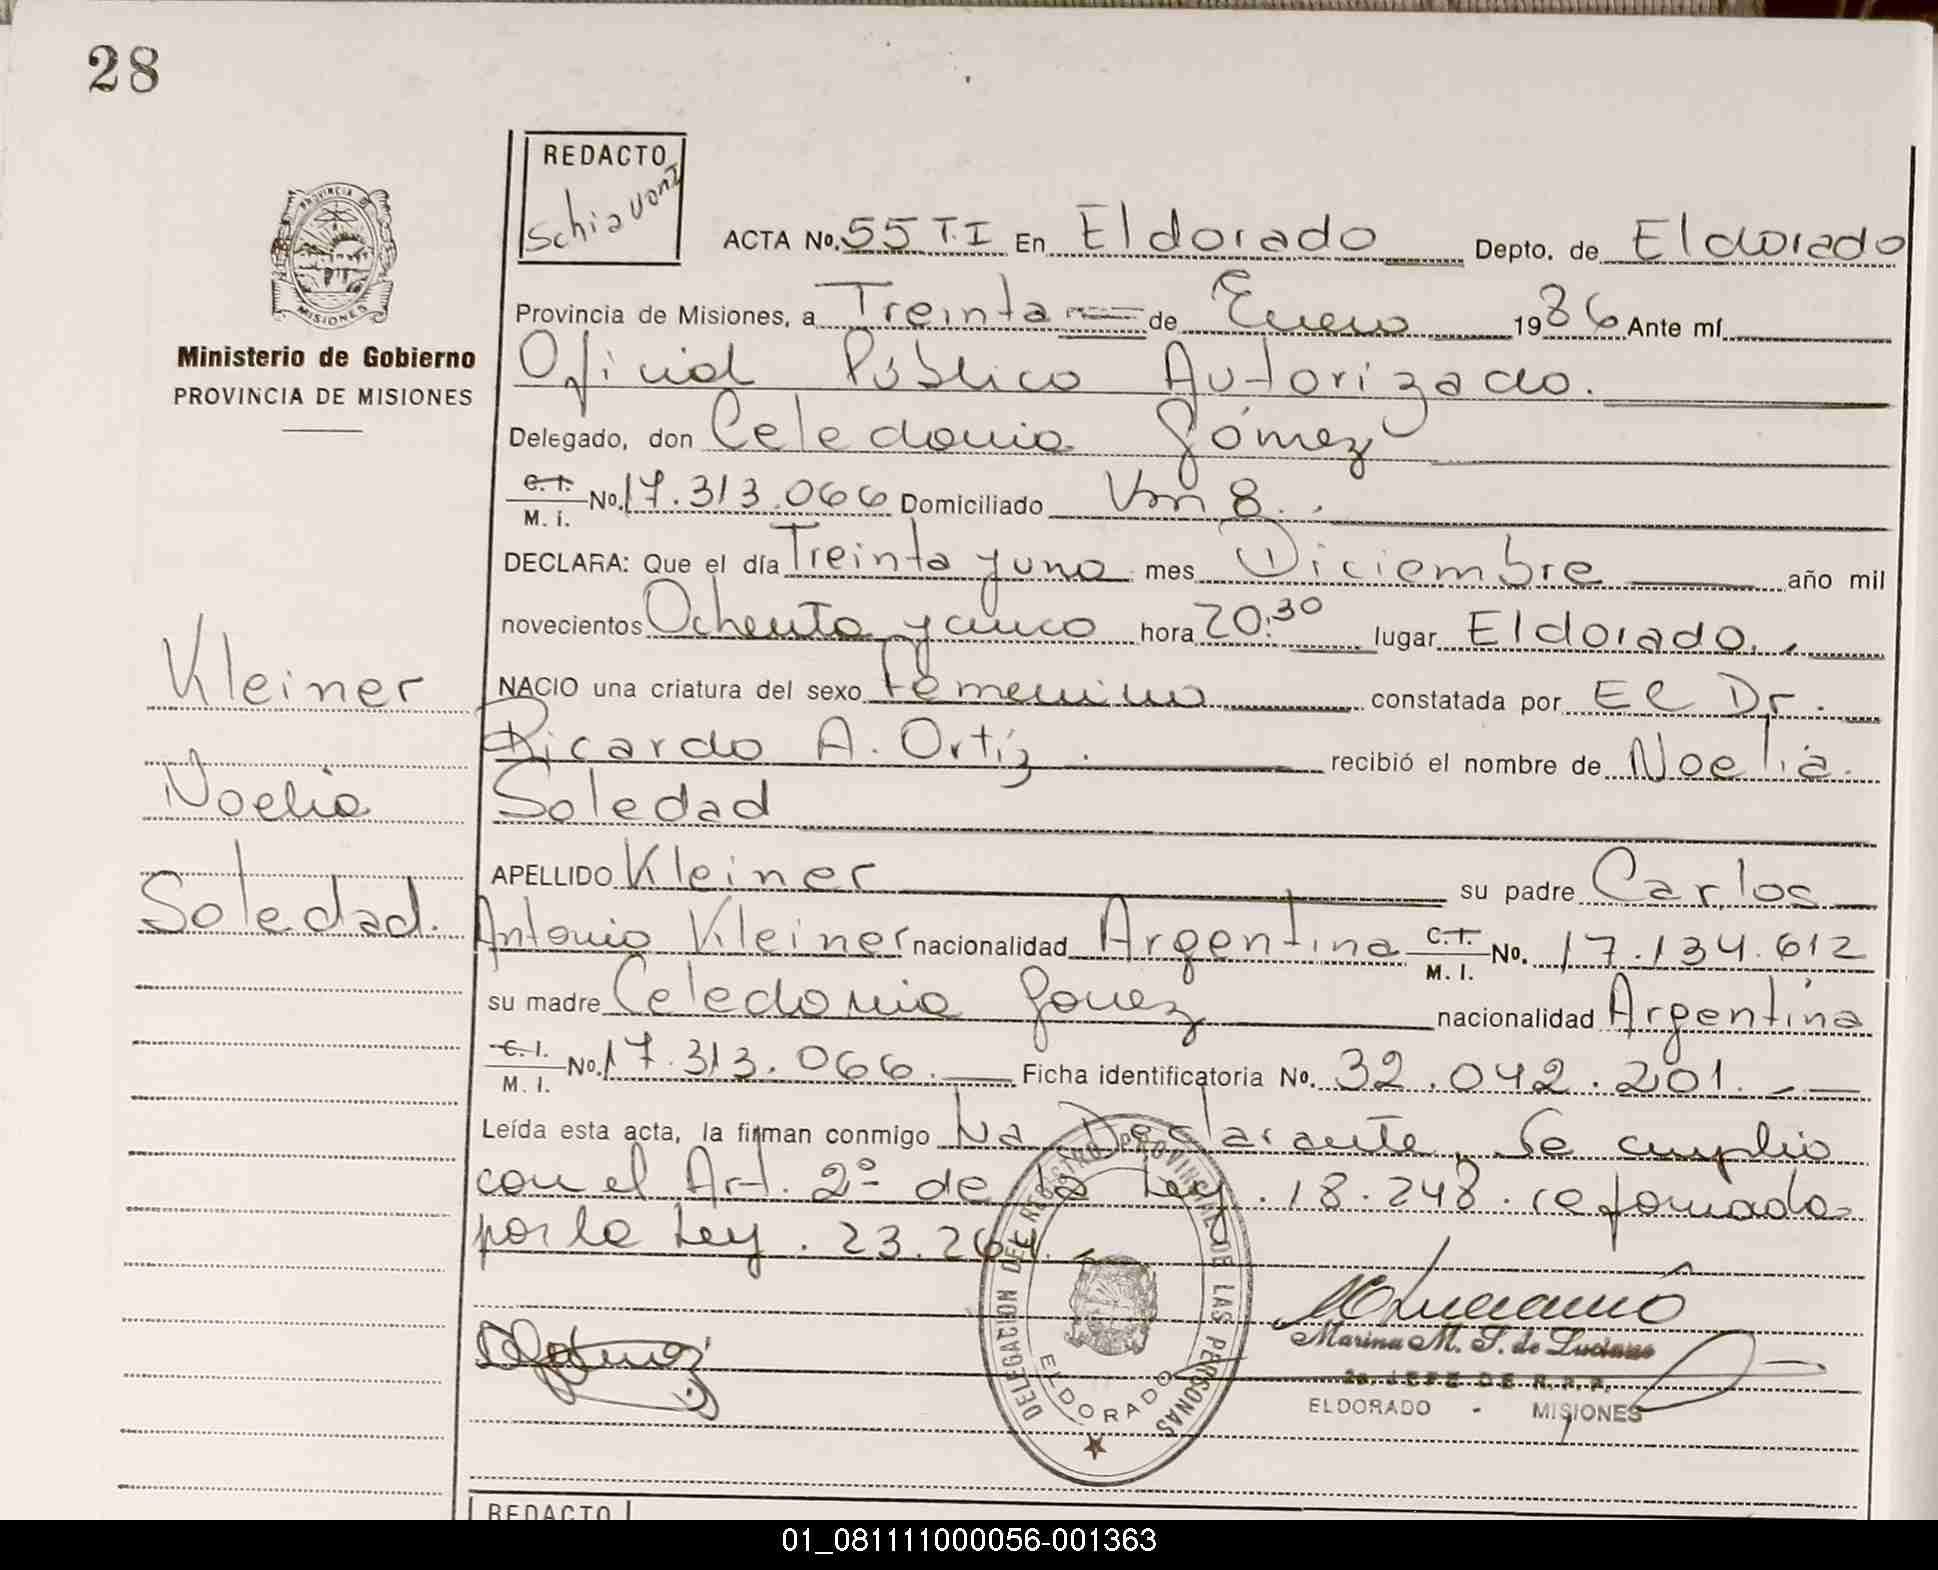 28
REDACTO
Schiavoni
PROVINCIA DE
MISIONES
Ministerio de Gobierno
PROVINCIA DE MISIONES
ACTA No. 55 T.I En Eldorado Depto. de Eldorado
Provincia de Misiones, a Treinta de Enero 1986 Ante mí
Oficial Público Autorizado.
Delegado, don Celedonia Gómez
C.I. M. i. No. 17.313.066 Domiciliado Km 8.
DECLARA: Que el día Treinta y uno mes Diciembre año mil
novecientos Ochenta y cinco hora 20:30 lugar Eldorado.
NACIO una criatura del sexo Femenino constatada por El Dr.
Ricardo A. Ortíz. recibió el nombre de Noelia
Soledad
APELLIDO Kleiner su padre Carlos
Antonio Kleiner nacionalidad Argentina C.I. M. I. No. 17.134.612
su madre Celedonia Gomez nacionalidad Argentina
C.I. M. I. No. 17.313.066. Ficha identificatoria No. 32.042.201.
Leída esta acta, la firman conmigo La Declarante, Se cumplio
con el Art. 2º de la Ley. 18.248. reformada
por la Ley. 23.264.
Kleiner
Noelia
Soledad.
DELEGACION DEL REGISTRO PROVINCIAL DE LAS PERSONAS
ELDORADO
Marina M. S. de Luciano
2a. JEFE DE R.P.P.
ELDORADO - MISIONES
REDACTO
01_081111000056-001363